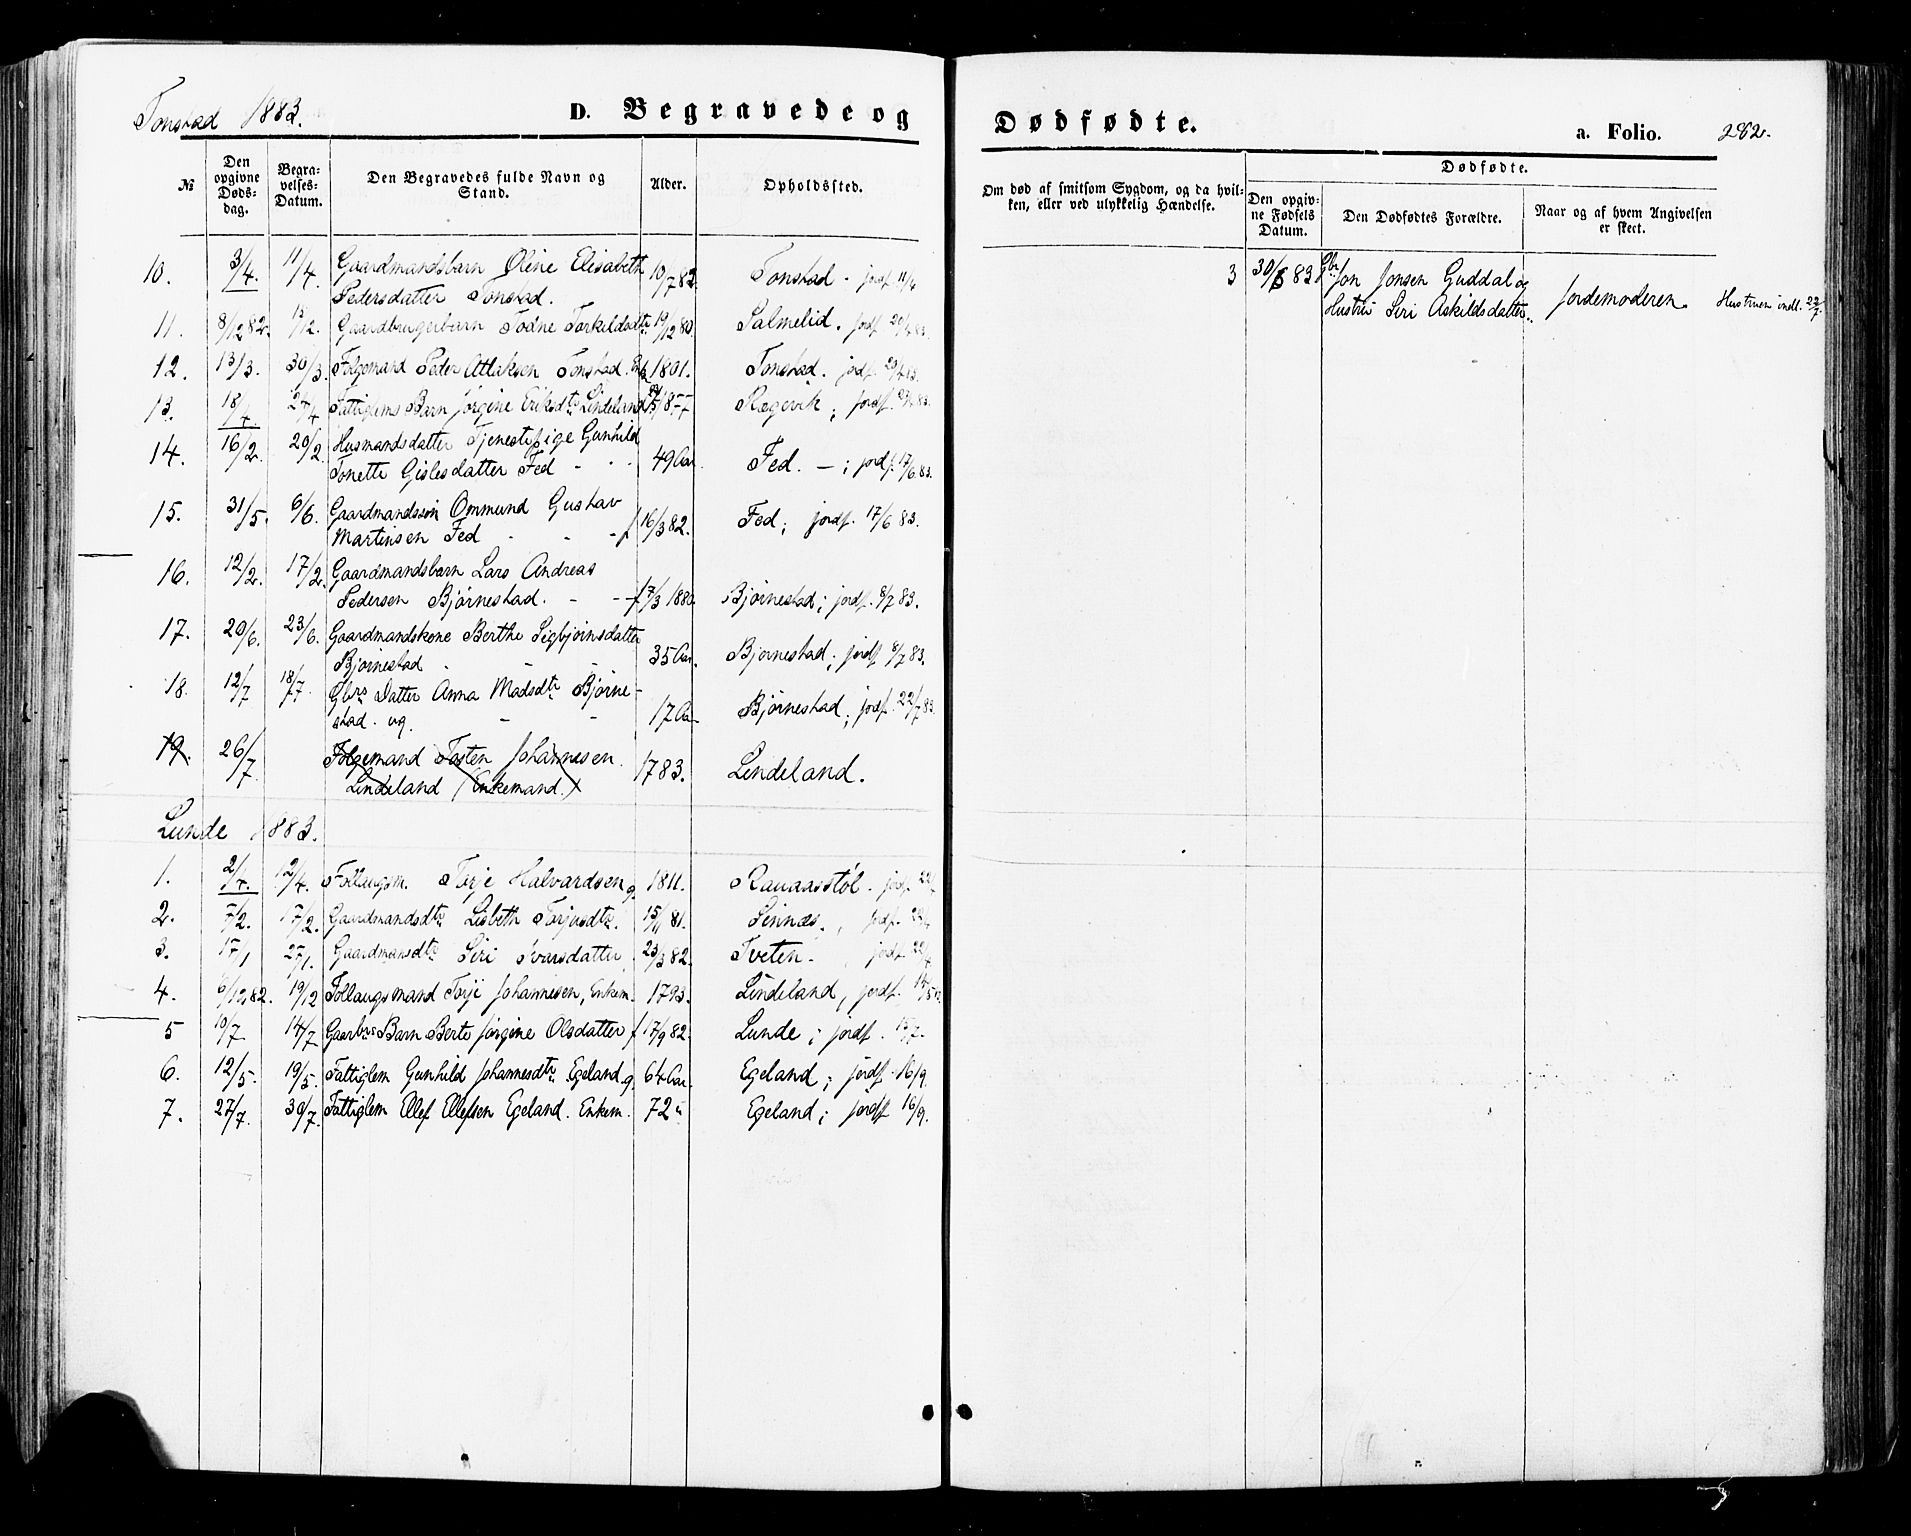 Tonstad 1883.
D. Begravede og Dødfødte.
a. Folio. 262.
№
Den opgivne Døds-dag.
Begra-velses-Datum.
Den Begravedes fulde Navn og Stand.
Alder.
Opholdssted.
Om død af smitsom Sygdom, og da hvil-ken, eller ved ulykkelig Hændelse.
Dødfødte.
Den opgiv-ne Fødsels Datum.
Den Dødfødtes Forældre.
Naar og af hvem Angivelsen er skeet.
10. 3/4. 11/4. Gaardmandsbarn Oline Elisabeth 10/7 82. Tonstad - jordf. 11/4
Pedersdatter Tonstad.
3 30/6 83 Gbr Jon Jonsen Guddal og
Hustru Siri Askildsdatter. Jordemoderen. Hustruen indl. 22/7.
11. 8/12 82. /12. Gaardbrugerbarn Todne Torkildsdtr 19/12 80. Salmelid. jordf.
12. 13/3. 30/3. Folgemand Peder Atlaksen Tonstad. Enk. 1801. Tonstad. jordf.
13. 18/4. 27/4 Fattiglems Barn Jørgine Eriksdtr Lindeland Røgevik; jordf.
14. 16/2. 20/2. Husmandsdatter Tjenestepige Gunhild
Tonette Gislesdatter Fed - - - 49 Aar. Fed. - ; jordf. 17/6 83.
15. 31/5. 6/6. Gaardmandssøn Ommund Gustav
Martinsen Fed - - - f 16/3 82. Fed; jordf. 17/6 83.
16. 12/2. 17/2. Gaardmandsbarn Lars Andreas
Pedersen Bjørnestad. - - f 17/3 1880. Bjørnestad; jordf. 8/7 83.
17. 20/6. 23/6. Gaardmandskone Berthe Sigbjørnsdatter
Bjørnestad - - - 35 Aar. Bjørnestad; jordf 8/7 83.
18. 12/7 18/7. Gbrs Datter Anna Madsdtr Bjørne-
stad. ug. - - 17 Aar Bjørnestad; jordf. 22/7 83.
19. 26/7 Folgemand Tosten Johannesen.
Lindeland (Enkemand.) 1783. Lindeland.
Lunde 1883.
1. 2/4. 12/4. Follaugsm. Torje Halvardsen g. 1811. Ravaasstøl. jordf.
2. 7/2. 17/2. Gaardmandsdtr Lisbeth Torjusdtr. 15/11 81. Sinnæs., jordf.
3. 17/1 27/1. Gaardmansdtr Siri Ivarsdatter 23/3 82. Tveten. , jordf
4. 6/12 82. 19/12 Follaugsmand Torje Johannesen, Enkem. 1793. Lindeland, jordf.
5 10/7 14/7 Gaarbrs Barn Berte Jørgine Olsdatter f 17/9 82. Lunde; jordf. 15/7.
6. 12/5. 19/5. Fattiglem Gunhild Johannesdtr Egeland g. 64 Aar. Egeland; jordf. 16/9.
7. 27/7. 30/7. Fattiglem Ellef Ellefsen Egeland. Enkem. 72 " Egeland; jordf 16/9.